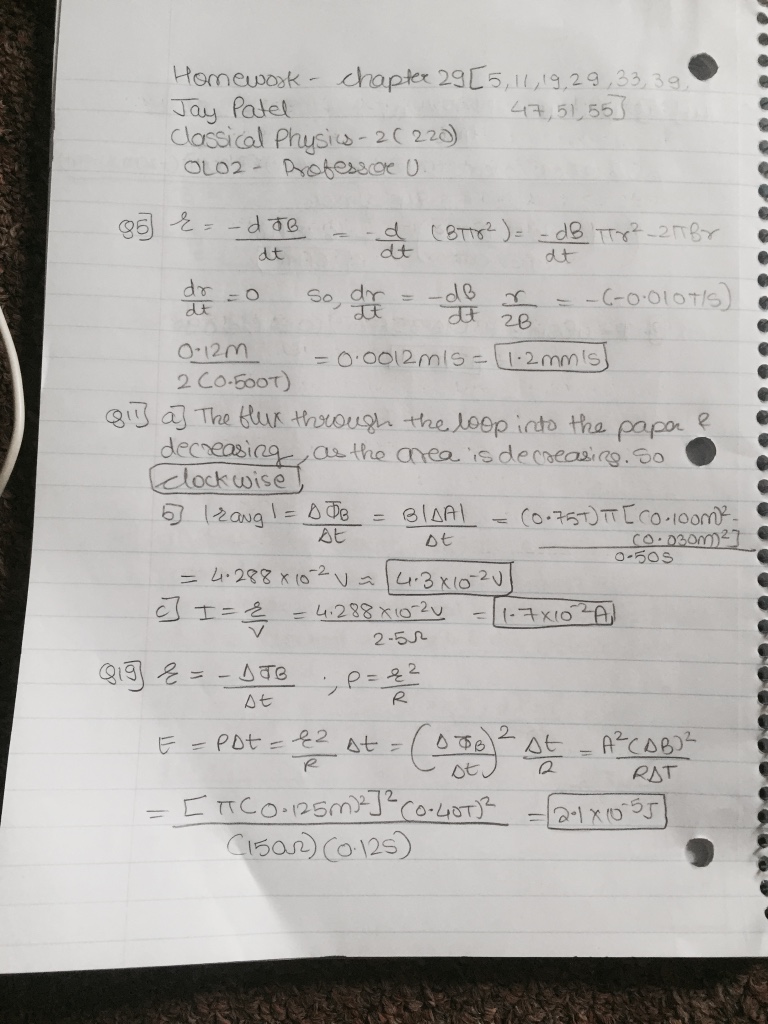 Homework - chapter 29 [5, 11, 19, 29, 33, 39,
47, 51, 55]
Jay Patel
Classical Physics - 2 ( 220)
OL02 - Professor U
Q5] ℰ = -dΦB/dt = -d/dt (Bπr²) = -dB/dt πr² - 2πBr
dr/dt = 0 So, dr/dt = -dB/dt r/2B = -(-0.010T/S)
0.12m/2(0.500T) = 0.0012m/s = 1.2mm/s
Q11] a] The flux through the loop into the papa &
decreasing, as the area is decreasing. So
clockwise
b] |ℰavg| = ΔΦB/Δt = B|ΔA|/Δt = (0.75T)π[(0.100m)² - (0.030m)²]/0.50s
= 4.288 x 10⁻² V ≈ 4.3 x 10⁻² V
c] I = ℰ/V = 4.288 x 10⁻² V/2.5Ω = 1.7 x 10⁻² A
Q19] ℰ = -ΔΦB/Δt ; P = ℰ²/R
E = PΔt = ℰ²/R Δt = (ΔΦB/Δt)² Δt/R = A²(ΔB)²/RΔT
= [π(0.125m)²]²(0.40T)²/(150Ω)(0.12S) = 2.1 x 10⁻⁵ J